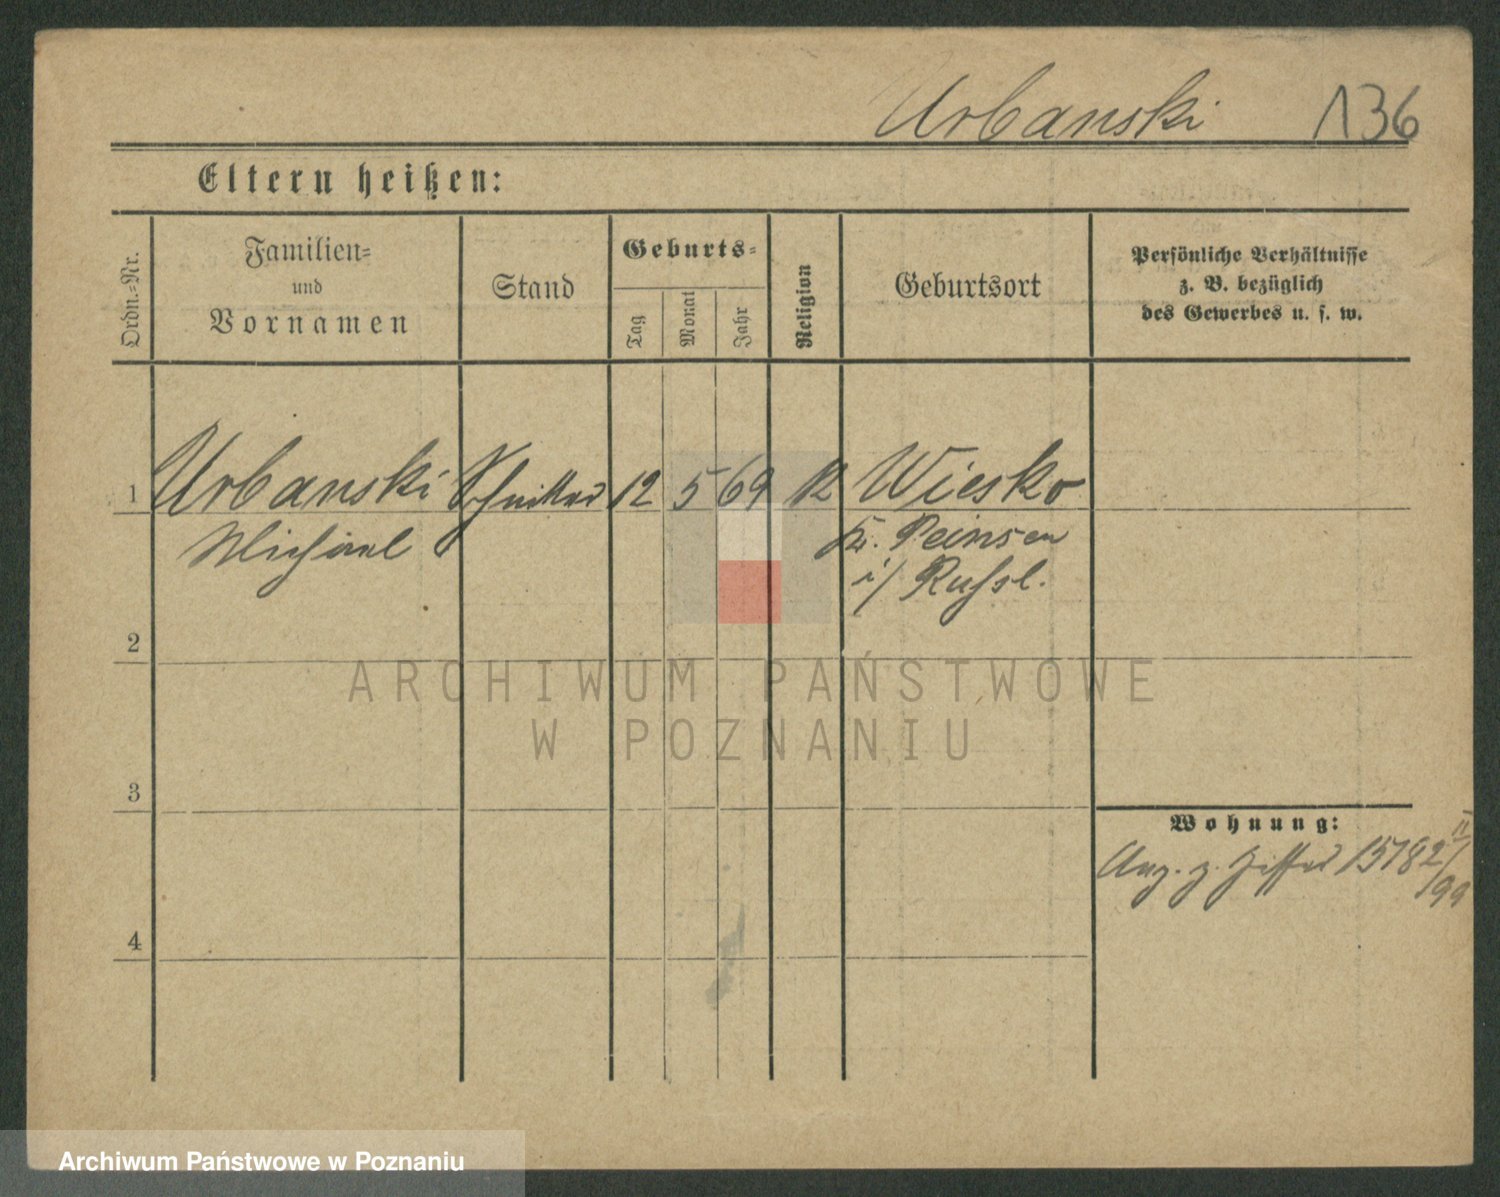 Urbanski 136
Eltern heißen:
Ordn.-Nr.
Familien-
und
Vornamen
Stand
Geburts-
Tag
Monat
Jahr
Religion
Geburtsort
Persönliche Verhältnisse
z. B. bezüglich
des Gewerbes u. s. w.
1 Urbanski Schnitter 12 5 69 Wiesko
Michael Kr. Peinsen
i/ Russl.
2
ARCHIWUM PAŃSTWOWE
W POZNANIU
3
Wohnung:
Ang. z. Ziffer 15182 II/99
4
Archiwum Państwowe w Poznaniu